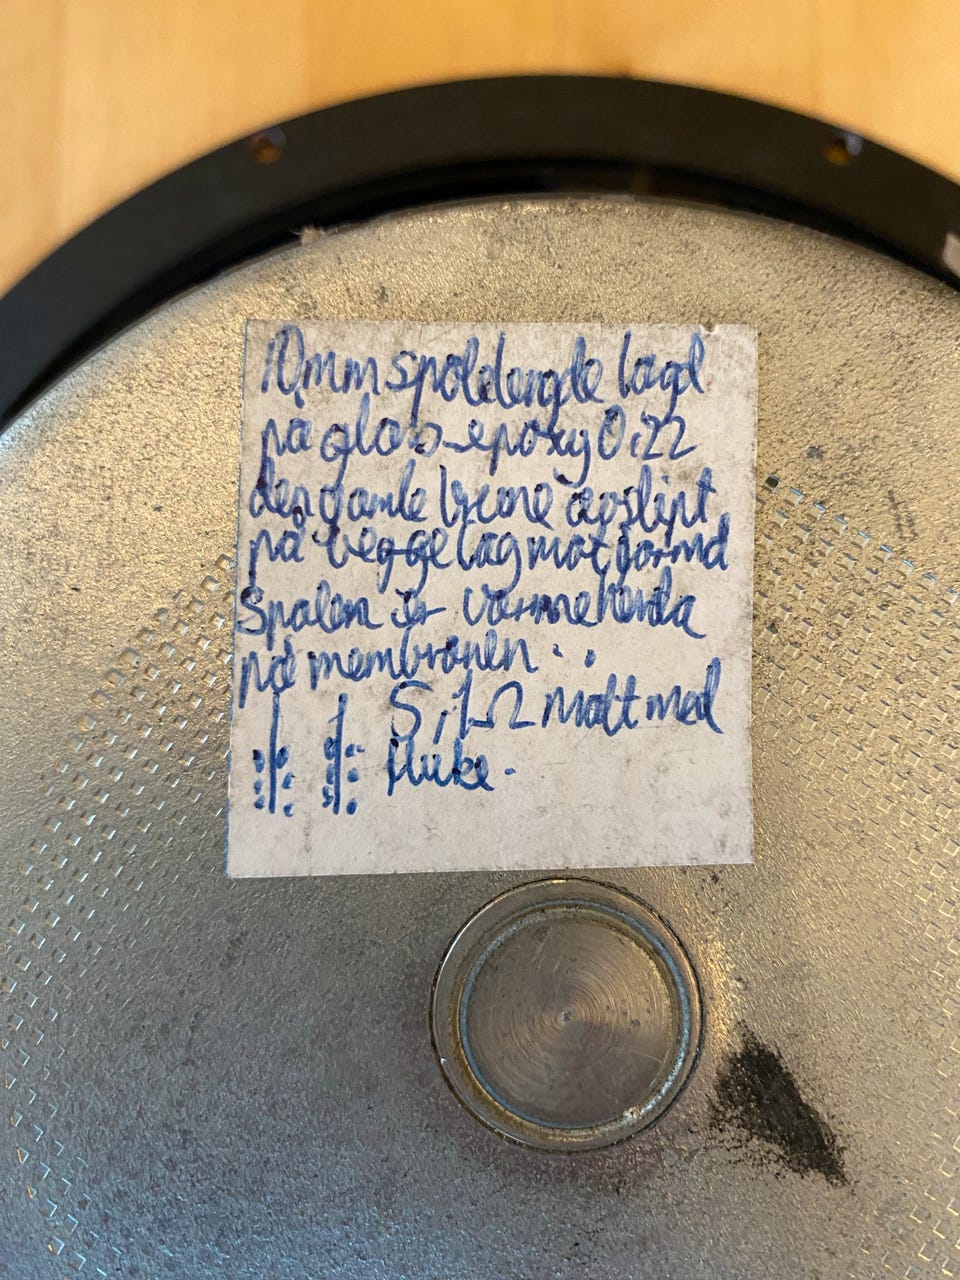 10mm spolelengde lagd
på glass-epoxy 0,22
den gamle brune avslipt
på begge lag mot
Spolen er varmeherda
på membranen.
5,1Ω målt med
fluke.